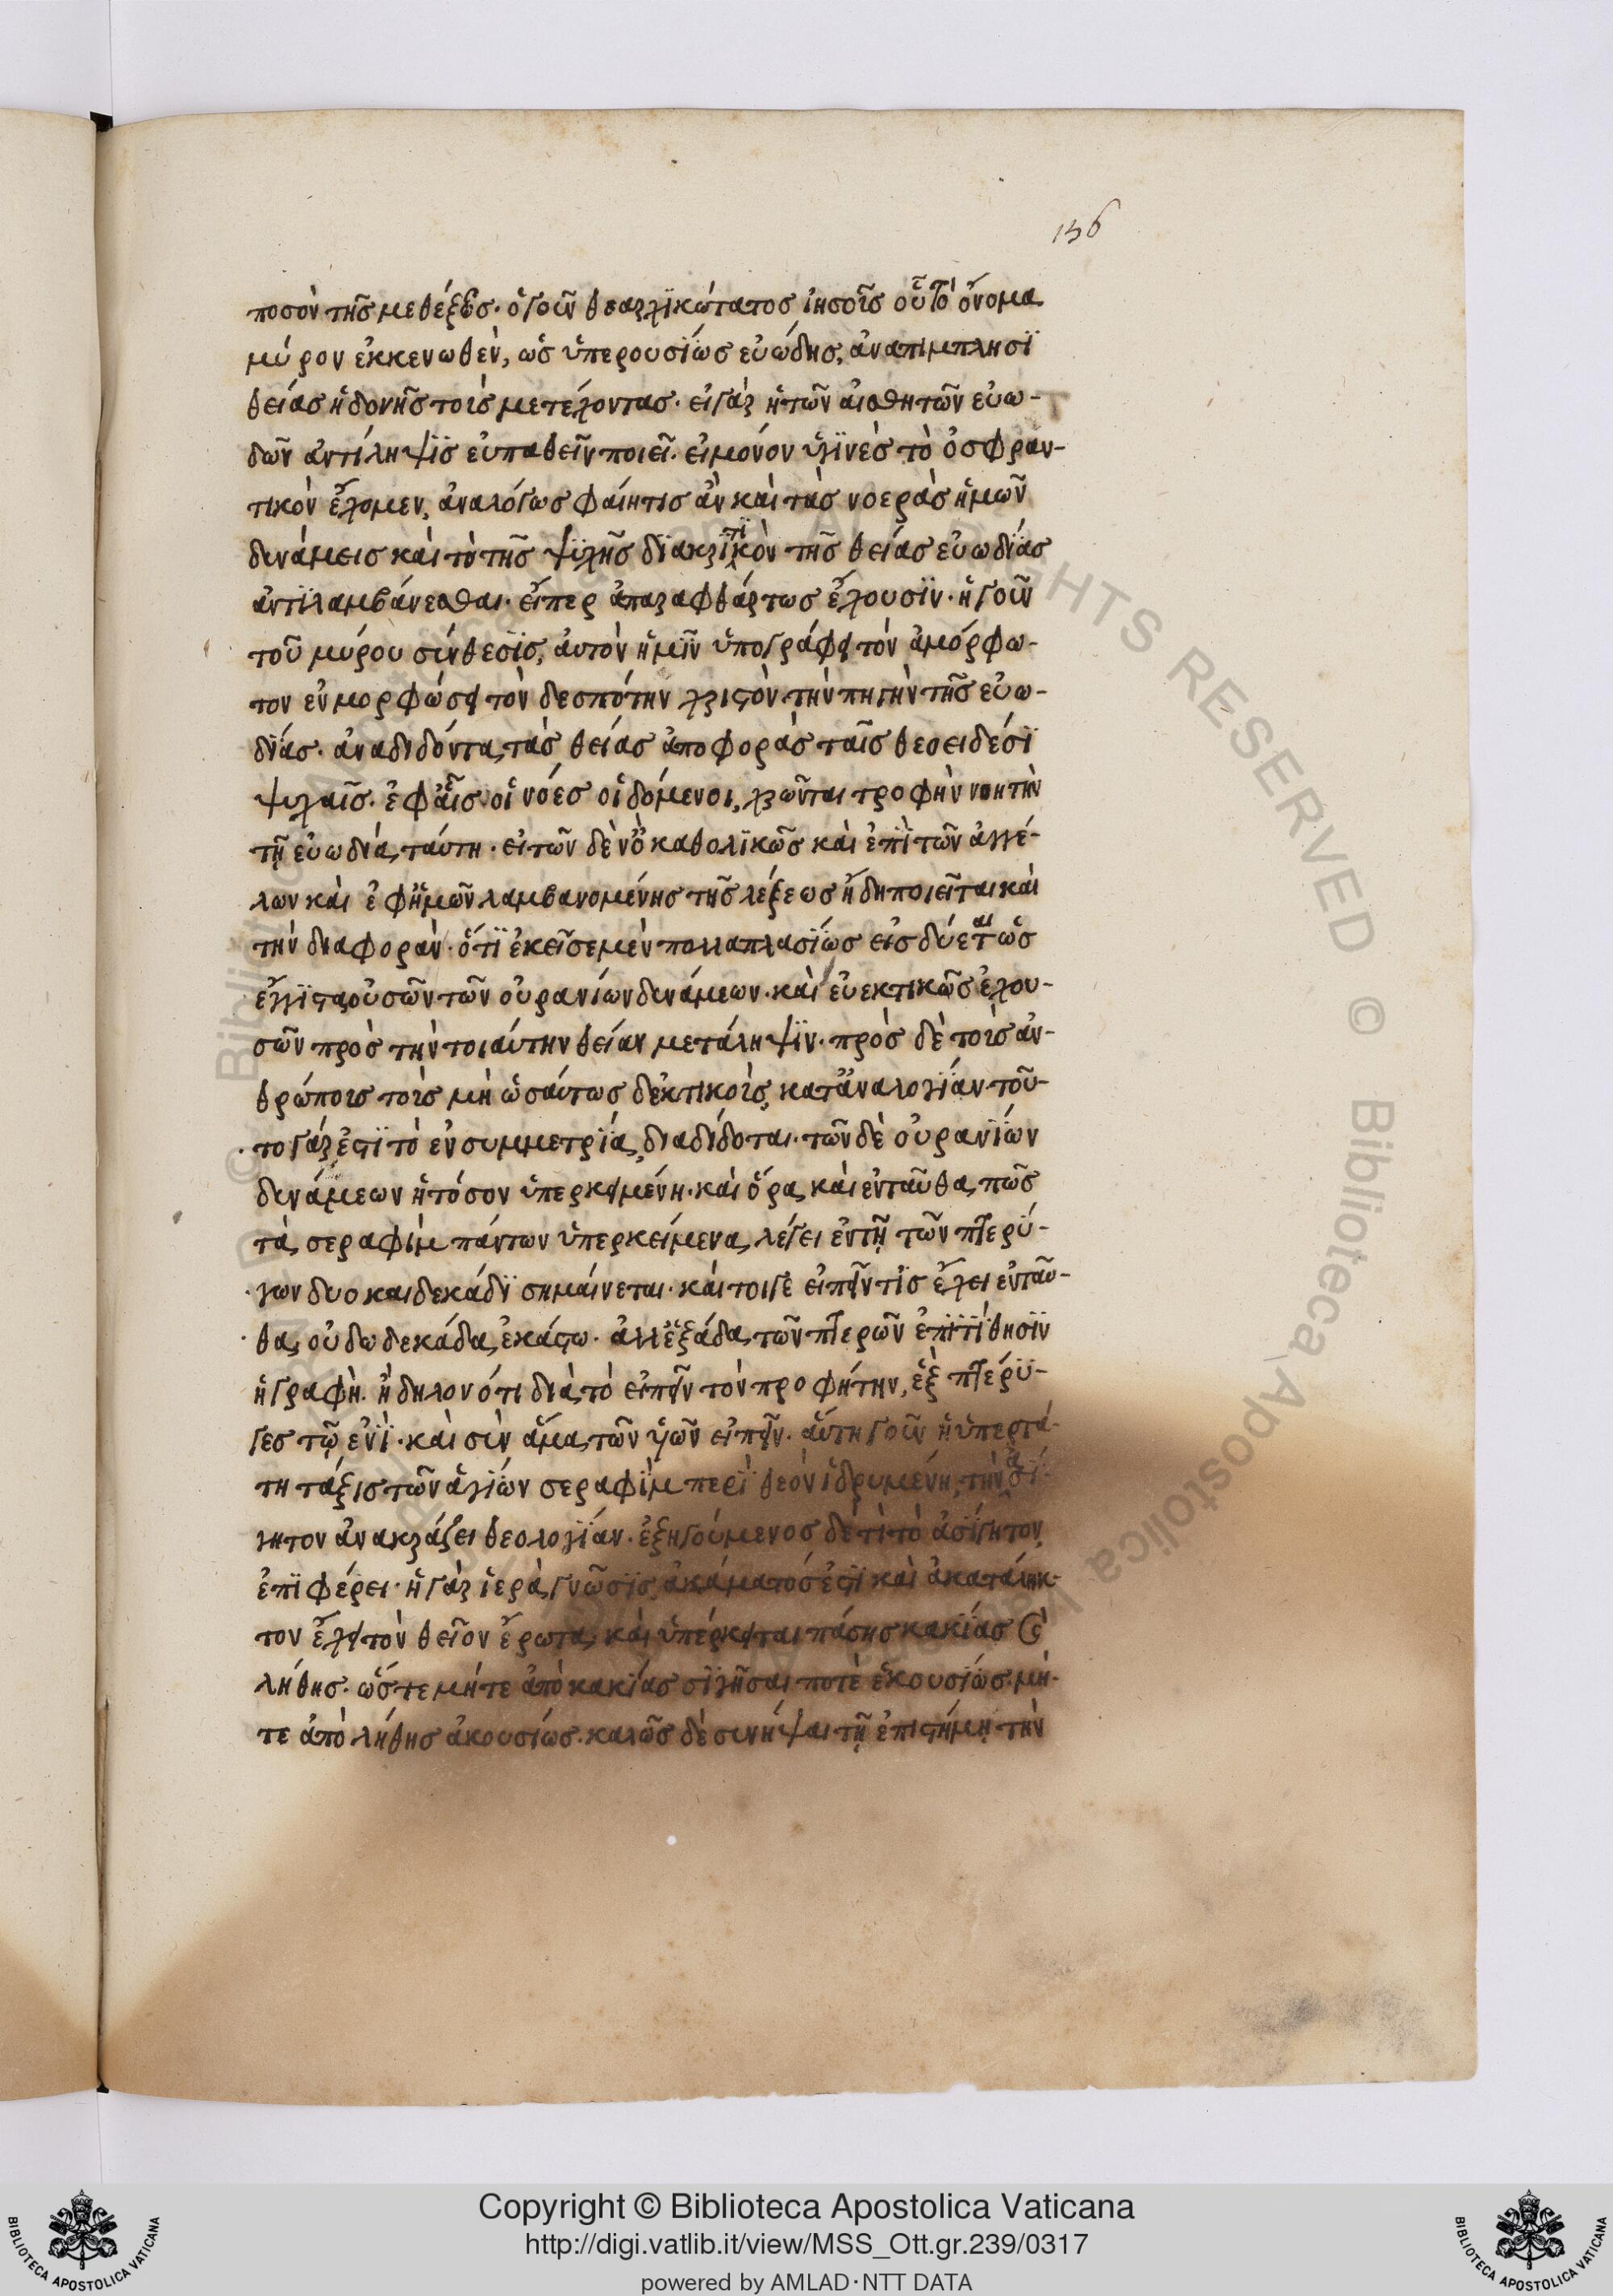 156
ποσὸν τῆς μεθέξεως· ὁ γοῦν θεαρχικώτατος ἰησοῦς οὗ τὸ ὄνομα
μύρον ἐκκενωθὲν, ὡς ὑπερουσίως εὐώδης, ἀναπίμπλησϊ
θείας ἡδονῆς τοὺς μετέχοντας· εἰ γὰρ ἡ τῶν αἰσθητῶν εὐω-
δῶν ἀντίληψϊς εὐπαθεῖν ποιεῖ· εἰ μόνον ὑγϊὲς τὸ ὀσφραν-
τικὸν ἔχομεν, ἀναλόγως φαίη τις ἂν καὶ τὰς νοερὰς ἡμῶν
δυνάμεις καὶ τὸ τῆς ψυχῆς δϊακρϊτϊκὸν τῆς θείας εὐωδίας
ἀντϊλαμβάνεσθαι· εἴπερ ἀπαραφθάρτως ἔχουσϊν· ἡ γοῦν
τοῦ μύρου σύνθεσϊς, αὐτὸν ἡμῖν ὑπογράφει τὸν ἀμόρφω-
τον ἐν μορφώσει τὸν δεσπότην χριστὸν τὴν πηγὴν τῆς εὐω-
δϊάς· ἀναδιδόντα τὰς θείας ἀποφορὰς ταῖς θεοειδέσϊ
ψυχαῖς· ἐφ αἷς οἱ νόες οἱ δόμενοι, χρῶνται τροφὴν νοητὴν
τῇ εὐωδιά ταύτη· εἰτῶν δὲ νῦ καθολϊκῶς καὶ ἐπὶ τῶν ἀγγέ-
λων καὶ ἐφ ἡμῶν λαμβανομένης τῆς λέξεως ἤδη ποιεῖται καὶ
τὴν διαφορὰν· ὅτϊ ἐκεῖσε μὲν πολλαπλασϊώς εἰσδύεται ὡς
ἔγγϊστα οὐσῶν τῶν οὐρανίων δυνάμεων· καὶ εὐεκτικῶς ἐχου-
σῶν πρὸς τὴν τοιαύτην θείαν μετάληψϊν· πρὸς δὲ τοῖς ἀν-
θρώποις τοῖς μὴ ὡσαύτως δεκτικοῖς, κατ ἀναλογϊάν τοῦ-
το γάρ ἐστϊ τὸ ἐν συμμετρϊά, διαδίδοται· τῶν δὲ οὐρανϊών
δυνάμεων ἡ τόσον ὑπερκειμένη· καὶ ὅρα καὶ ἐνταῦθα πῶς
τὰ σεραφὶμ πάντων ὑπερκείμενα λέγει ἐν τῇ τῶν πτερύ-
γων δυοκαιδεκάδϊ σημαίνεται· καίτοιγε εἰπεῖν τϊς ἔχει ἐνταῦ-
θα, οὐ δωδεκάδα ἑκάστω· ἀλλ ἑξάδα τῶν πτερῶν ἐπϊτϊθησϊν
ἡ γραφὴ· ἢ δηλονότι διὰ τὸ εἰπεῖν τὸν προφήτην, ἓξ πτέρϋ-
γες τῷ ἑνϊ· καὶ σὺν ἅμα τῶν εἰπεῖν· αὕτη γοῦν ἡ ὑπερτά-
τη τάξις τῶν ἁγίων σεραφὶμ περϊ θεὸν ἱδρυμένη, τὴν ἀσί-
γητον ἀνακράζει θεολογϊάν· ἐξηγούμενος δέ τϊ τὸ ἀσίγητον,
ἐπϊφέρει· ἡ γὰρ ἱερὰ γνῶσϊς, ἀκάματός ἐστϊ καὶ ἀκατάληκ-
τον ἔχει τὸν θεῖον ἔρωτα, καὶ ὑπέρκειται πάσης κακίας καὶ
λήθης· ὥστε μήτε ἀπὸ κακίας σϊγῆσαι ποτὲ ἑκουσϊώς· μή-
τε ἀπὸ λήθης ἀκουσίως· καλῶς δὲ συνῆψαι τῇ ἐπιστήμῃ τὴν
Copyright © Biblioteca Apostolica Vaticana
http://digi.vatlib.it/view/MSS_Ott.gr.239/0317
powered by AMLAD·NTT DATA
BIBLIOTECA APOSTOLICA VATICANA
BIBLIOTECA APOSTOLICA VATICANA